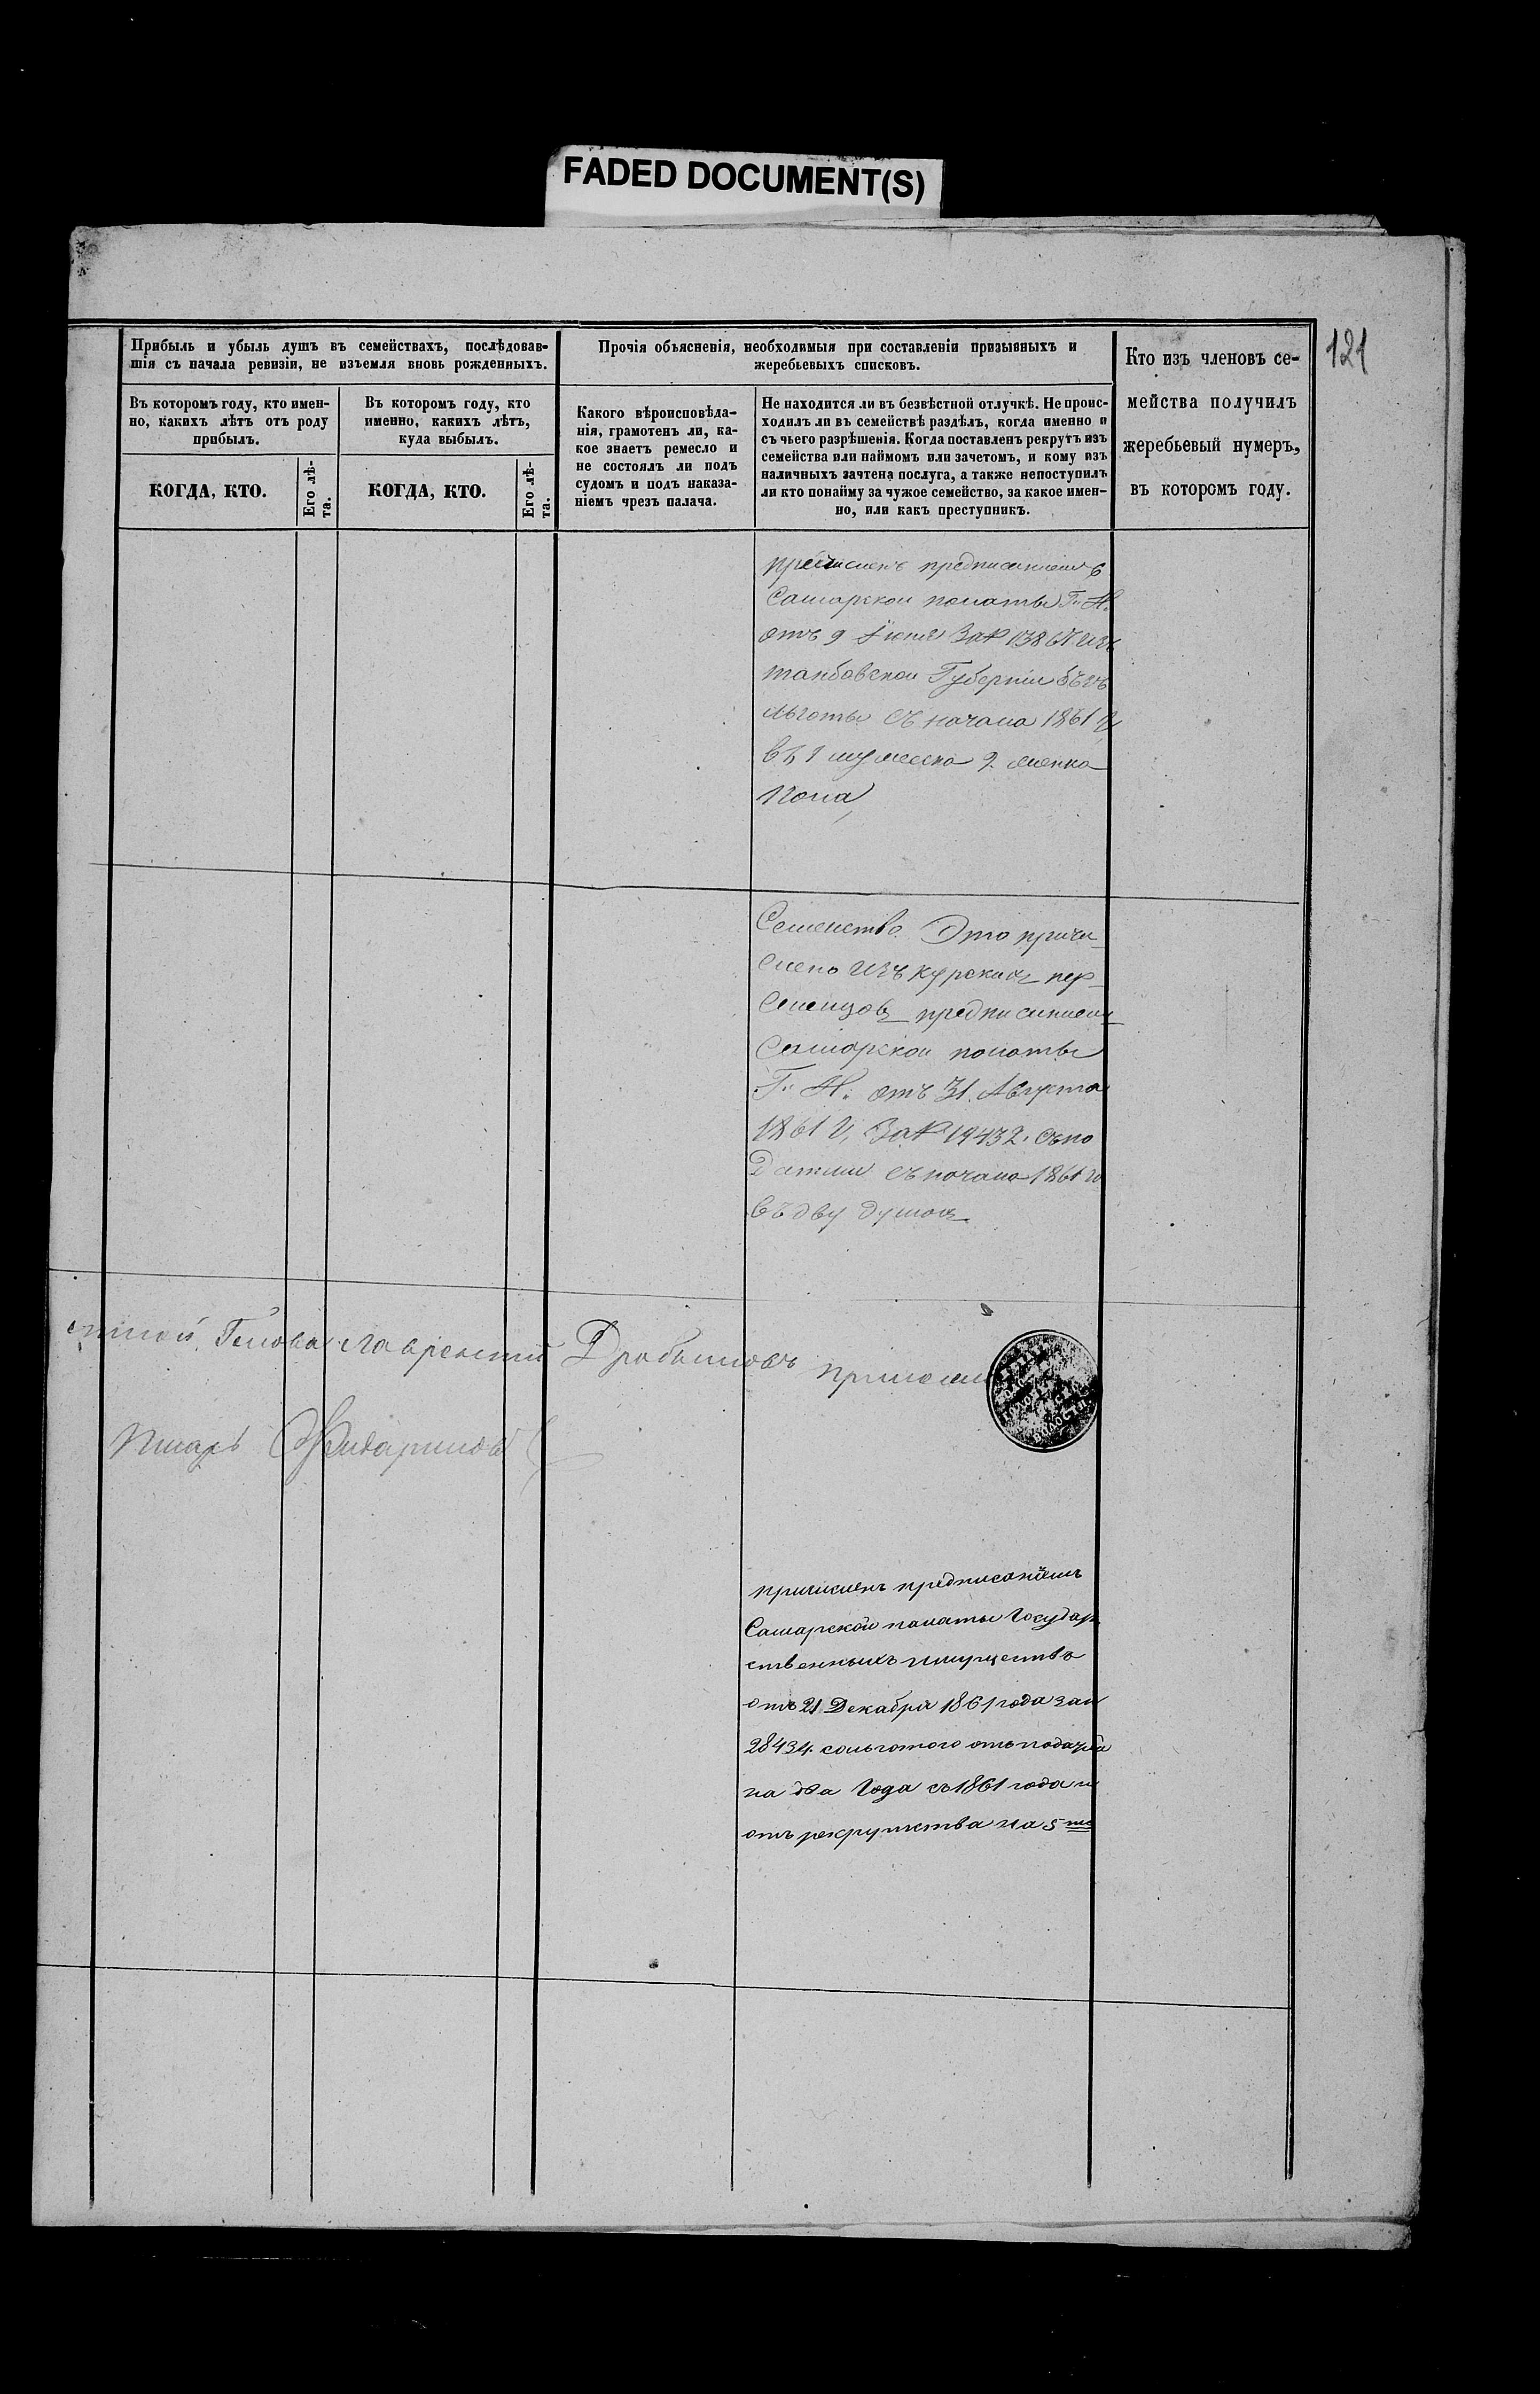 FADED DOCUMENT(S)
121
Прибыль и убыль душъ въ семействахъ, послѣдовав-
шія съ начала ревизіи, не изъемля вновь рожденныхъ.
Въ которомъ году, кто имен-
но, какихъ лѣтъ отъ роду
прибылъ.
Въ которомъ году, кто
именно, какихъ лѣтъ,
куда выбылъ.
КОГДА, КТО.
Его лѣ-
та.
КОГДА, КТО.
Его лѣ-
та.
Прочія объясненія, необходимыя при составленіи призывныхъ и
жеребьевыхъ списковъ.
Какого вѣроисповѣда-
нія, грамотенъ ли, ка-
кое знаетъ ремесло и
не состоялъ ли подъ
судомъ и подъ наказа-
ніемъ чрезъ палача.
Не находится ли въ безвѣстной отлучкѣ. Не проис-
ходилъ ли въ семействѣ раздѣлъ, когда именно и
съ чьего разрѣшенія. Когда поставленъ рекрутъ изъ
семейства или наймомъ или зачетомъ, и кому изъ
наличныхъ зачтена послуга, а также непоступилъ
ли кто понайму за чужое семейство, за какое имен-
но, или какъ преступникъ.
Кто изъ членовъ се-
мейства получилъ
жеребьевый нумеръ,
въ которомъ году.
предписаниемъ
Самарской полаты Г. И.
отъ 9 Июня За №
Губернии безъ
льготы съ начала 1861 г
въ 1 мужеска 2 женска
Пола
Семейство Это причи
слено изъ курскихъ пер
селенцовъ предписаниемъ
Самарской полаты
Г. И. отъ 31. Августа
1861 г, За № 19432. съпо
Датми съ начала 1861 го
въ дву душахъ
Голова Лаврентий Дробышовъ
Писарь
причисленъ предписаніемъ
Самарской палаты Государ
ственныхъ имуществъ
отъ 21 Декабря 1861 года за №
28434. сольготою отъ податей
на два Года съ 1861 года и
отъ рекрутства на 5